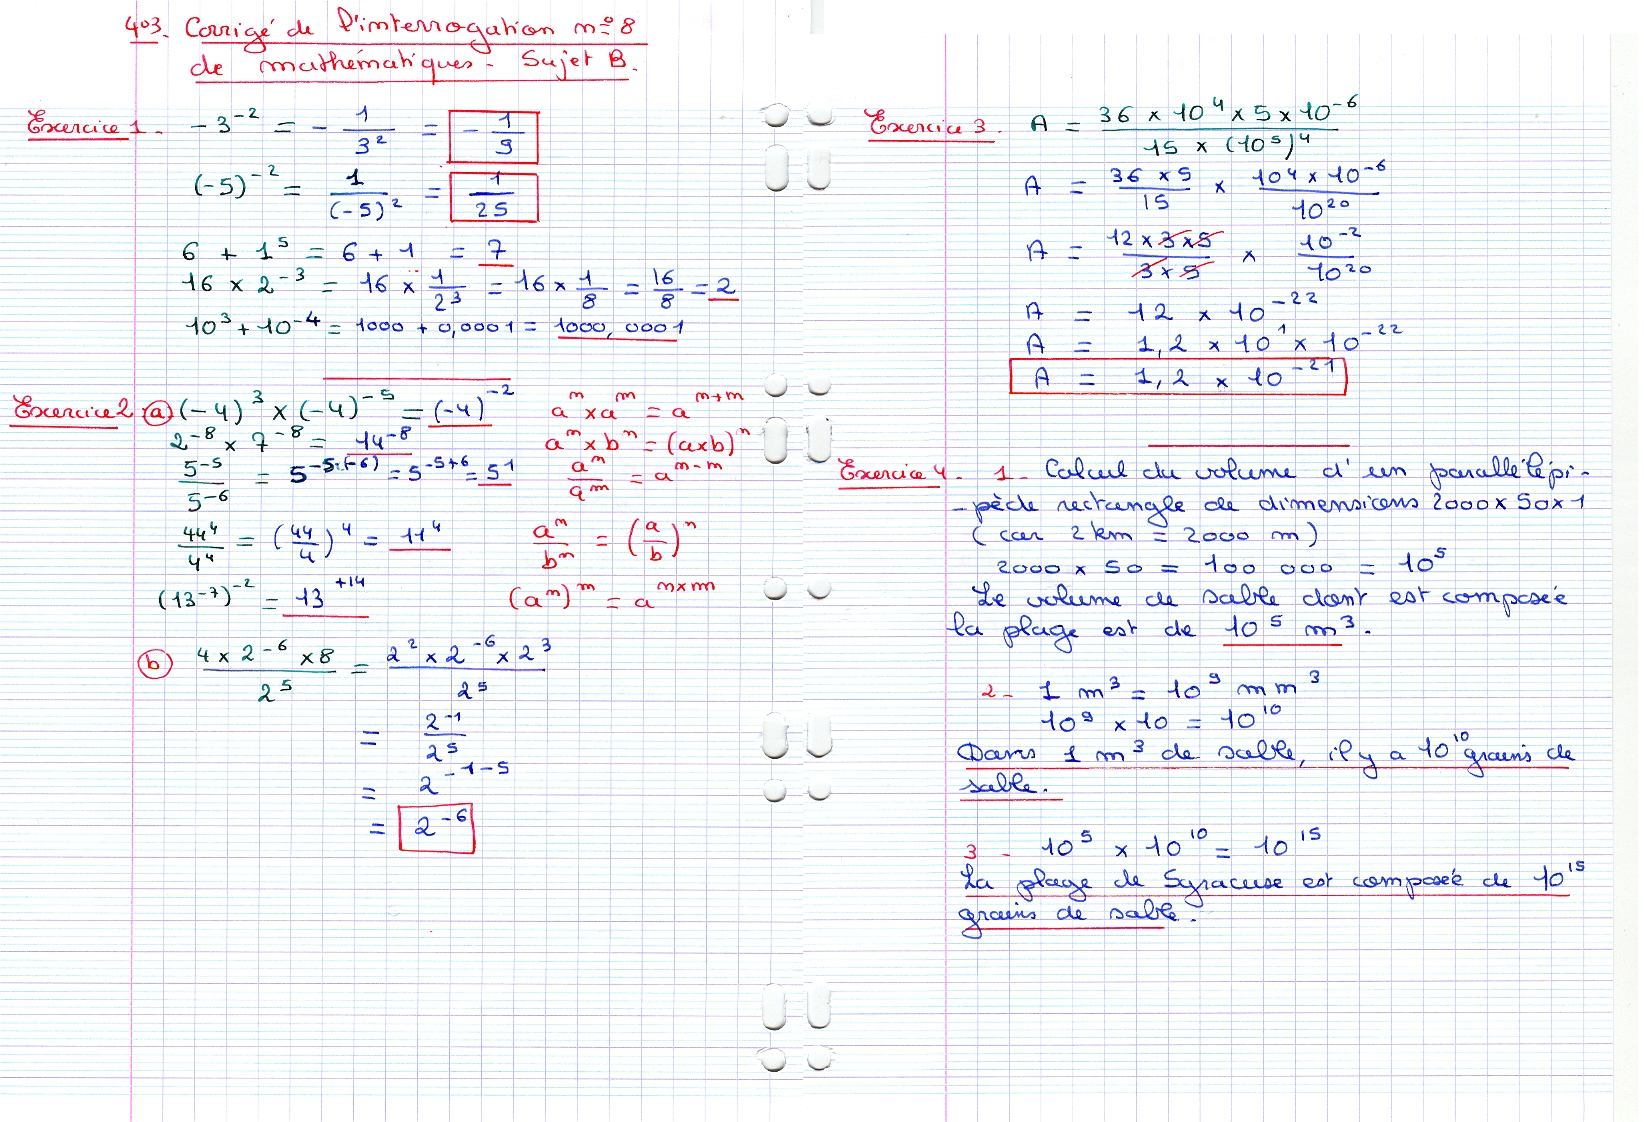 403. Corrigé de l'interrogation n° 8
de mathématiques - Sujet B.
Exercice 1. -3^{-2} = - 1/3² = - 1/9
(-5)^{-2} = 1/(-5)² = 1/25
6 + 1⁵ = 6 + 1 = 7
16 × 2^{-3} = 16 × 1/2³ = 16 × 1/8 = 16/8 = 2
10³ + 10^{-4} = 1000 + 0,0001 = 1000,0001
Exercice 2 (a) (-4)³ × (-4)^{-5} = (-4)^{-2} a^n × a^m = a^{n+m}
2^{-8} × 7^{-8} = 14^{-8} a^n × b^n = (a×b)^n
5^{-5}/5^{-6} = 5^{-5-(-6)} = 5^{-5+6} = 5¹ a^n/a^m = a^{n-m}
44⁴/4⁴ = (44/4)⁴ = 11⁴ a^n/b^n = (a/b)^n
(13^{-7})^{-2} = 13^{+14} (a^n)^m = a^{n×m}
(b) 4 × 2^{-6} × 8 / 2⁵ = 2² × 2^{-6} × 2³ / 2⁵
= 2^{-1}/2⁵
= 2^{-1-5}
= 2^{-6}
Exercice 3. A = 36 × 10⁴ × 5 × 10^{-6} / 15 × (10⁵)⁴
A = 36 × 5 / 15 × 10⁴ × 10^{-6} / 10^{20}
A = 12 × 3 × 5 / 3 × 5 × 10^{-2} / 10^{20}
A = 12 × 10^{-22}
A = 1,2 × 10¹ × 10^{-22}
A = 1,2 × 10^{-21}
Exercice 4. 1- Calcul du volume d'un parallélépi-
-pède rectangle de dimensions 2000 × 50 × 1
(car 2 km = 2000 m)
2000 × 50 = 100 000 = 10⁵
Le volume de sable dont est composée
la plage est de 10⁵ m³.
2- 1 m³ = 10⁹ mm³
10⁹ × 10 = 10^{10}
Dans 1 m³ de sable, il y a 10^{10} grains de
sable.
3- 10⁵ × 10^{10} = 10^{15}
La plage de Syracuse est composée de 10^{15}
grains de sable.